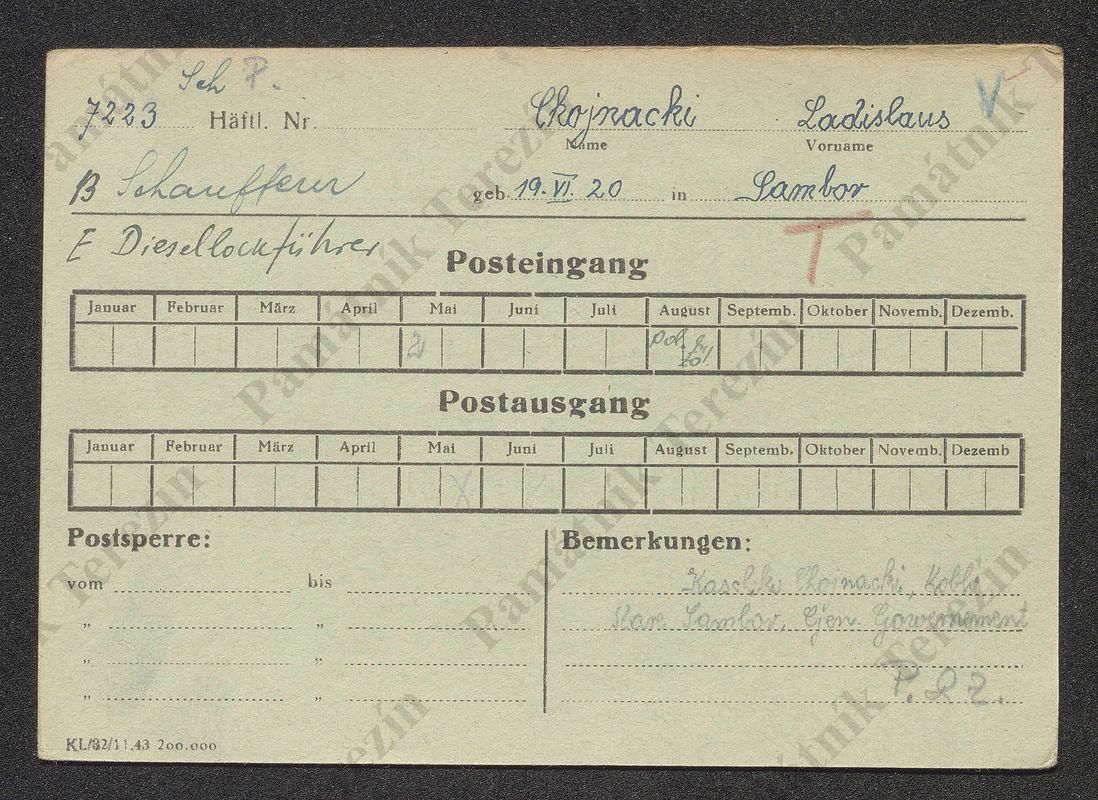 Sch P.
7223 Häftl. Nr. Chojnacki Ladislaus V
Name Vorname
B Schaufferur geb. 19. VI. 20 in Sambor
E Diesellockführer T
Posteingang
Januar Februar März April Mai Juni Juli August Septemb. Oktober Novemb. Dezemb.
2
Postausgang
Januar Februar März April Mai Juni Juli August Septemb. Oktober Novemb. Dezemb
X
Postsperre: Bemerkungen:
vom bis Chojnacki,
" " Sambor, Gen. Gowernement
" "
" " P. Z.
KL/32/11.43 200.000
Památník Terezín